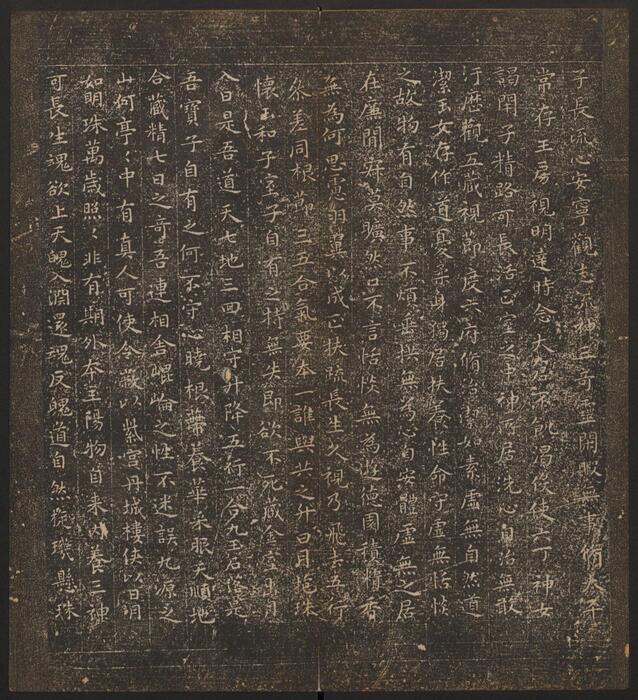 子長流心安寧觀志流神三奇靈閒暇無事脩太平
常存玉房視明達時念大倉不飢渴役使六丁神女
謁閉子精路可長活正室之中神所居洗心自治無敢
汙歷觀五藏視節度六府脩治潔如素虛無自然道
潔玉女存作道憂柔身獨居扶養性命守虛無恬惔
之故物有自然事不煩垂拱無為心自安體虛無之居
在廉閒寂莫曠然口不言恬惔無為遊德園積精香
無為何思慮羽翼以成正扶疏長生久視乃飛去五行
參差同根節三五合氣要本一誰與共之升日月抱珠
懷玉和子室子自有之持無失即欲不死藏金室出月
入日是吾道天七地三回相守升降五行一合九玉石落落是
吾寶子自有之何不守心曉根養華采服天順地
合藏精七日之奇吾連相舍崐崘之性不迷誤九源之
山何亭〻中有真人可使令蔽以紫宮丹城樓俠以日月
如明珠萬歲照〻非有期外本三陽物自来內養三神
可長生魂欲上天魄入淵還魂反魄道自然璣懸珠